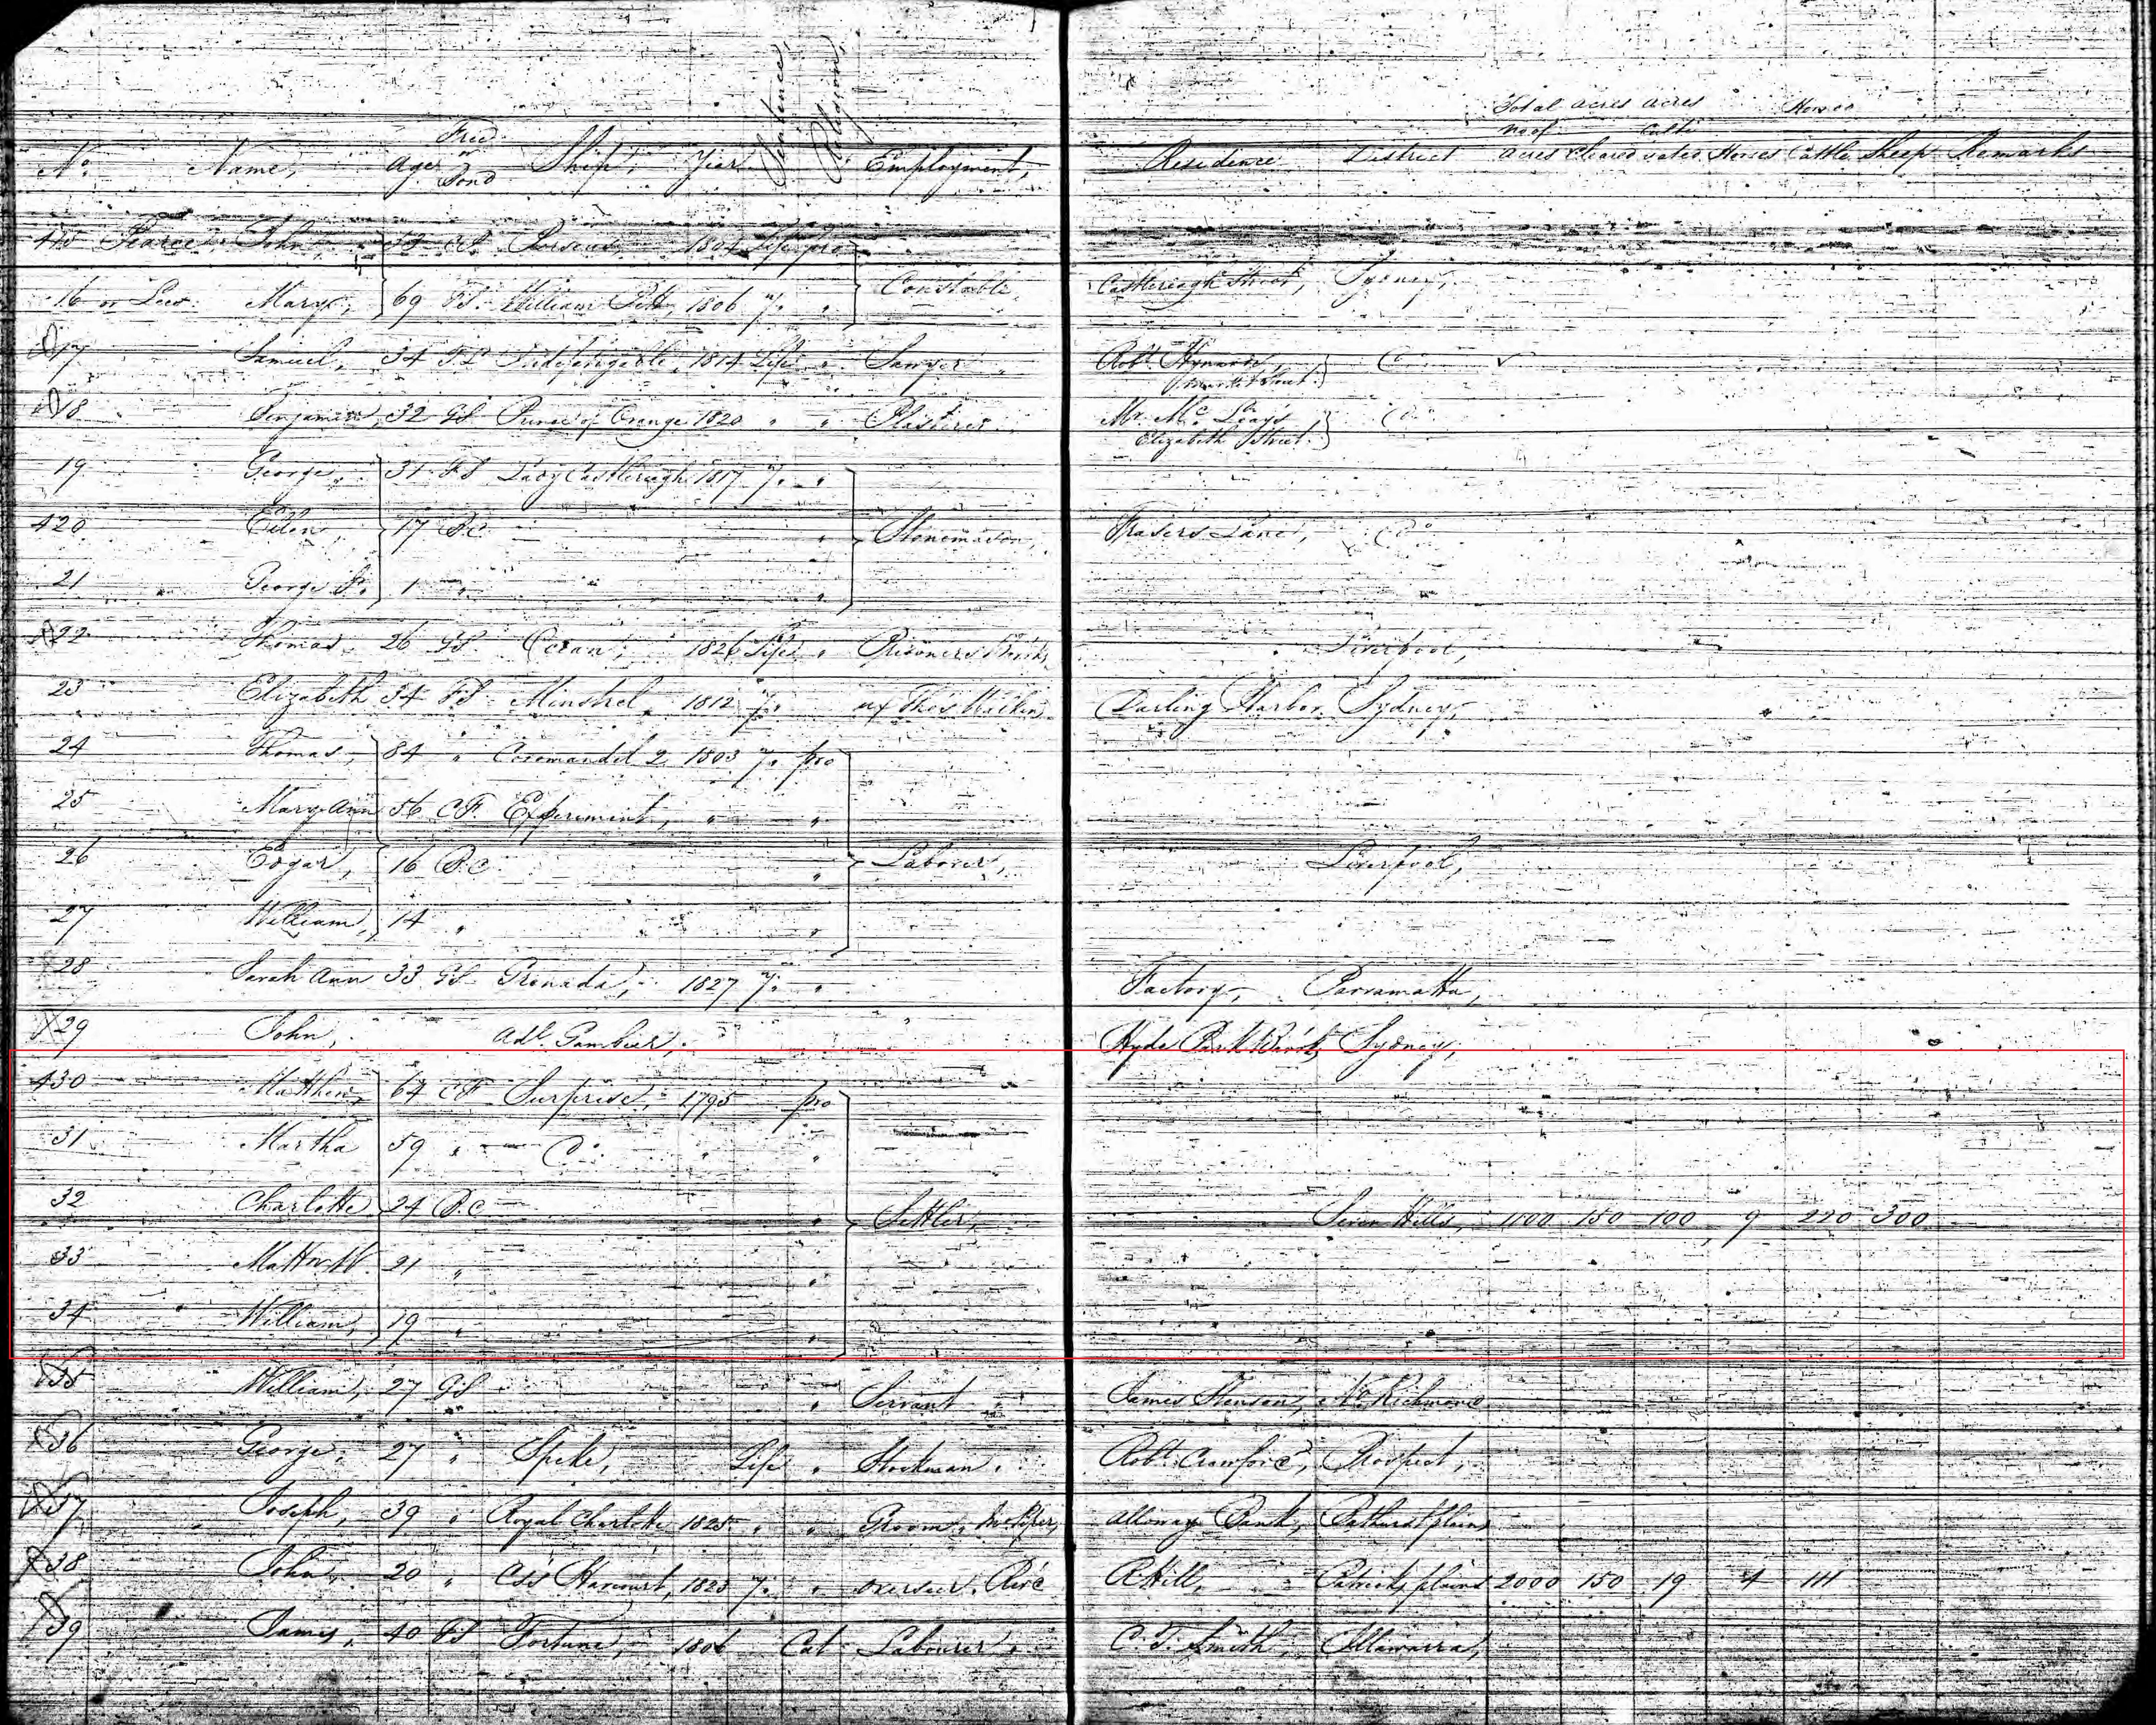 Sentence, Religion,
Total acres acres Horned
Free no of Culti
No. Name, Age or Ship, Year Employment, Residence District acres Cleared vated Horses Cattle Sheep Remarks
Bond
415 Pearce John, 1804 Life pro
Constable, Castlereagh Street, Sydney,
16 or Lees Mary, 69 F.S. William Pitt, 1806 7. "
17 Samuel, 34 Indefatigable, 1814 Life " Sawyer Robt. Do
18 Benjamin, 32 G.S. Prince of Orange 1820 " " Plasterer Mr. Mc Leay's Do
Elizabeth Street.
19 George, 31 F.S. Lady Castlereagh 1817 7. "
420 Ellen, 17 B.C. " Stonemason, Frasers Lane, Do
21 George Jr. 1 " "
22 Thomas 26 G.S. Ocean, 1826 Life " Prisoners Liverpool,
23 Elizabeth 34 F.S. Minstrel, 1812 7. Darling Harbor Sydney,
24 Thomas, 84 " Coromandel 2 1803 7. pro
25 Mary Ann 56 C.F. Experiment, " "
26 Edgar, 16 B.C. " Laborer, Liverpool,
27 William, 14 " "
28 Sarah Ann 33 G.S. Grenada, 1827 7. " Factory, Parramatta,
29 John, Adl. Gambier, " Hyde Park Sydney,
430 Matthew, 64 C.F. Surprise, 1795 pro
31 Martha 59 " Do " "
32 Charlotte 24 B.C. " Settler, Seven Hills, 150 100 9 220 300
33 Mattw. W. 21 " "
34 William, 19 " "
35 William, 27 G.S. " Servant James Henson, No Richmond
36 George, 27 " Speke, Life " Stockman, Robt. Crawford, Prospect,
37 Joseph, 39 " Royal Charlotte 1825 " " Groom, Alloway Bank, Bathurst plains
38 John, 20 " Css Harcourt, 182 7. " overseer, R. Hill, Patricks plains 2000 150 19 4 111
39 James, 40 Fortune, 1806 Cat Labourer, C. T. Smith, Illawarra,